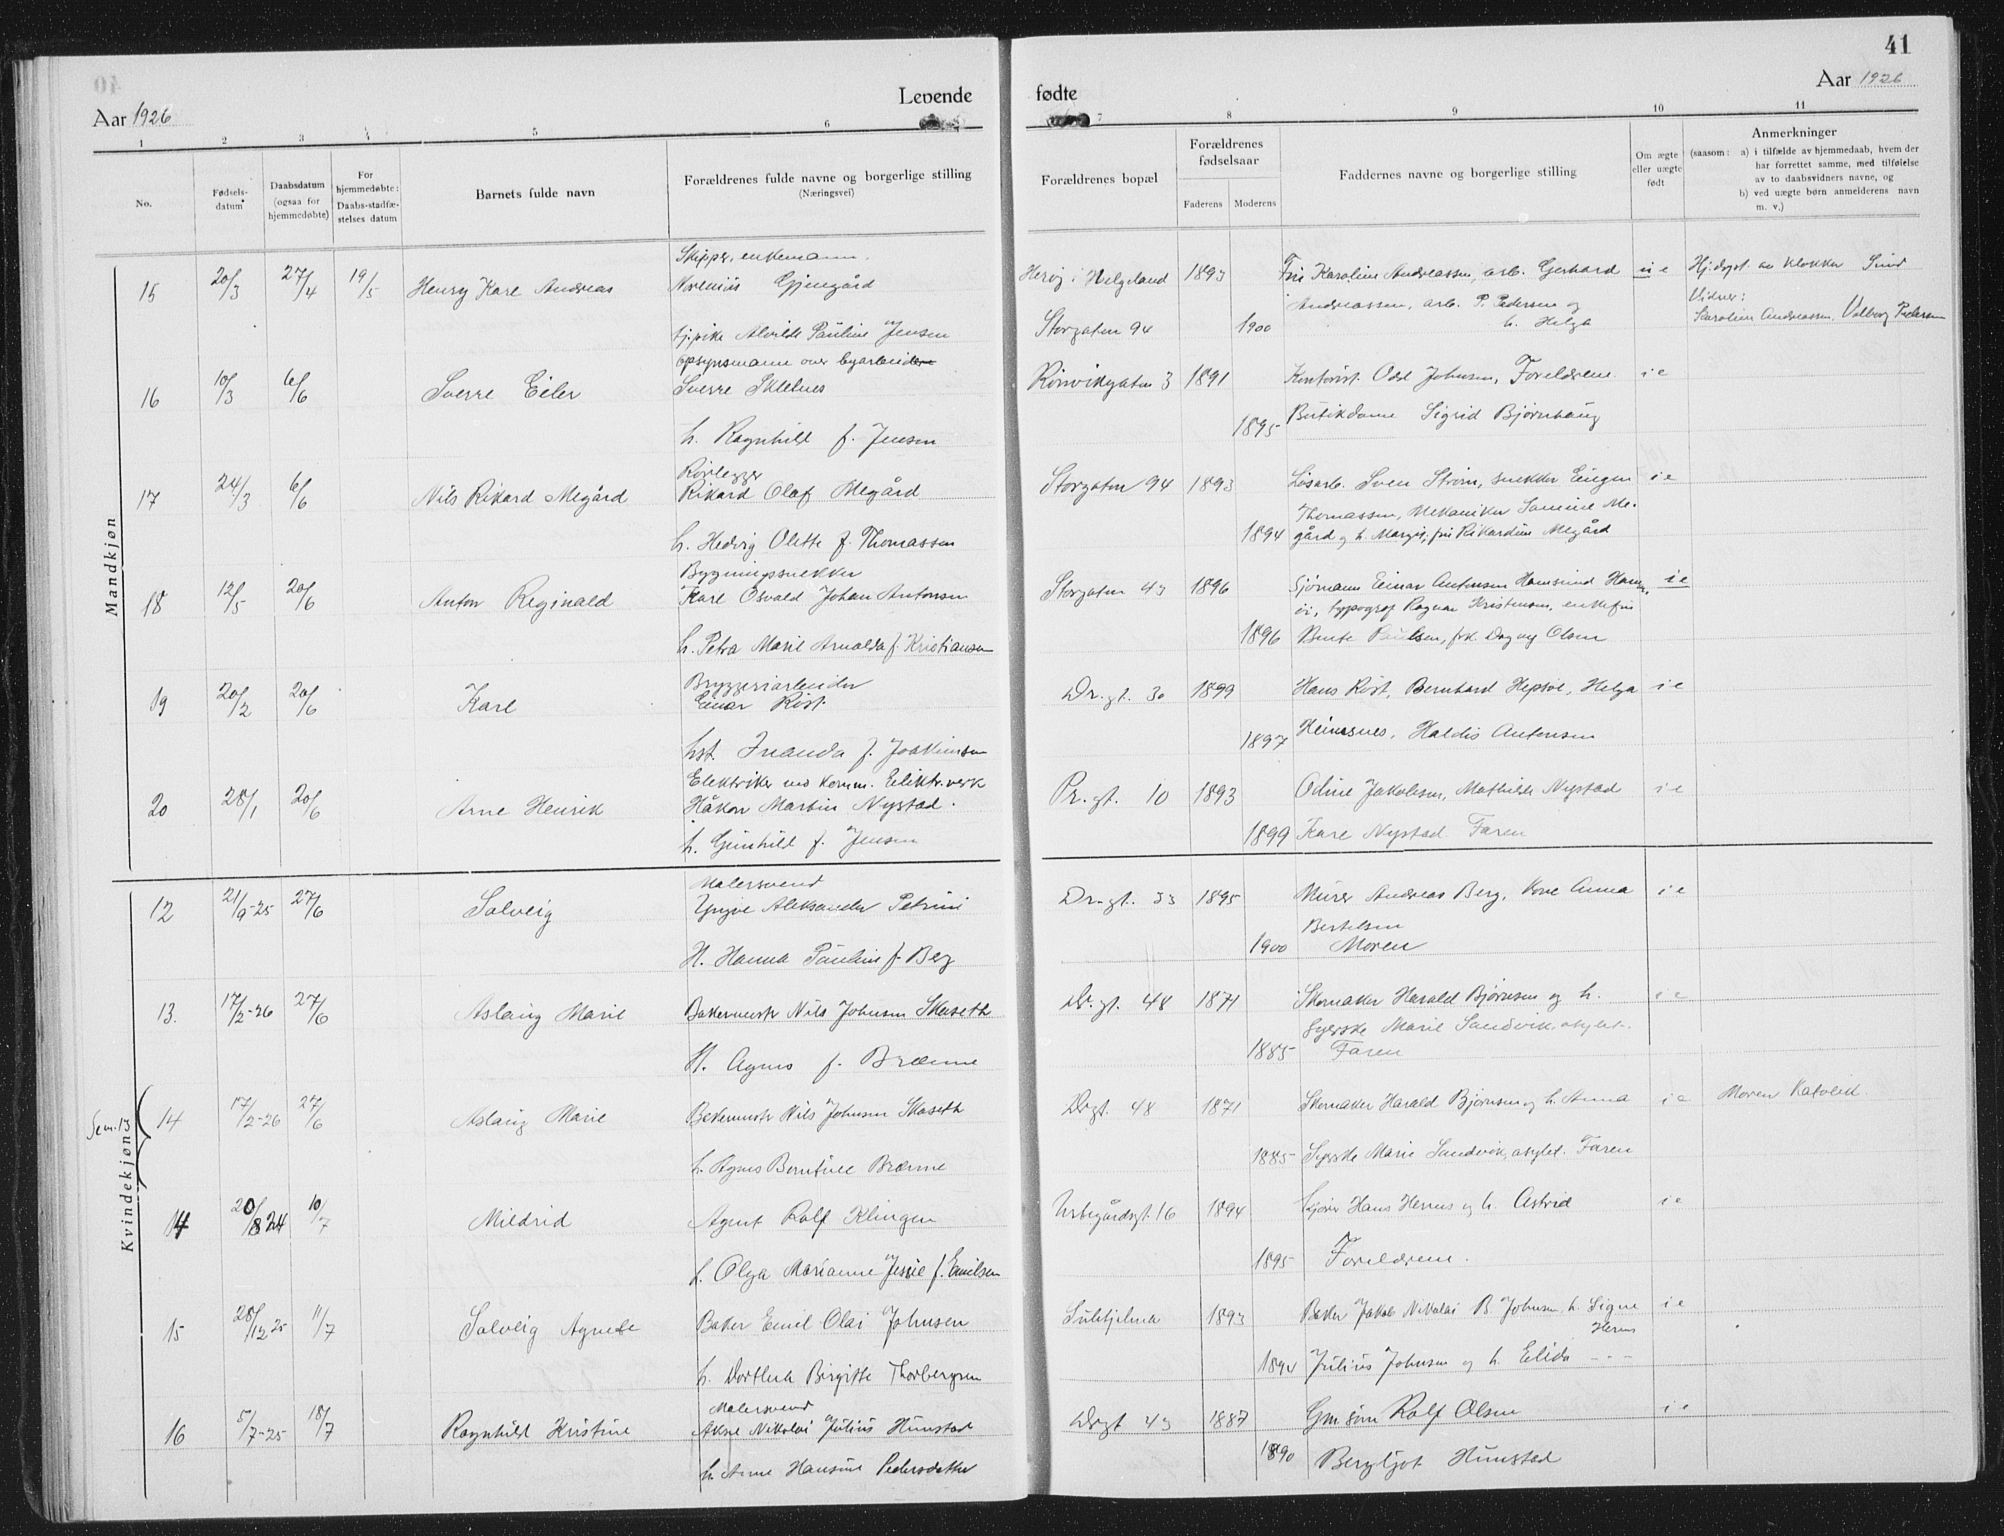 41
Aar 1926
Levende
fødte
Aar 1926
1 2 3 4 5 6 7 8 9 10 11
No.
Fødsels-
datum
Daabsdatum
(ogsaa for
hjemmedøbte)
For
hjemmedøbte:
Daabs-stadfæ-
stelses datum
Barnets fulde navn
Forældrenes fulde navne og borgerlige stilling
(Næringsvei)
Forældrenes bopæl
Forældrenes
fødselsaar
Faderens Moderens
Faddernes navne og borgerlige stilling
Om ægte
eller uægte
født
Anmerkninger
(saasom: a) i tilfælde av hjemmedaab, hvem der
har forrettet samme, med tilføielse
av to daabsvidners navne, og
b) ved uægte børn anmelderens navn
m. v.)
Mandkjøn
Skipper, enkemann
15 20/3 27/4 19/5 Henry Kare Andreas Gjengård Herøy i Helgeland 1893 Karoline Andreassen, arb. Gerhard u e Hj.døpt av klokker
Andreassen, arb. P. Pedersen og Vidner:
Alvilde Pauline Jensen Storgaten 94 1900 h. Helga Karoline Andreassen, Valborg Pedersen
opsynsmann over byarbeider
16 10/3 6/6 Sverre Eiler Sverre Rønvikgaten 3 1891 Kontorist Odd Johnsen, Foreldrene i e
h. Ragnhild f. Jensen 1895 Butikdame Sigrid Bjørnhaug
Rørlegger
17 24/3 6/6 Nils Rikard Megård Rikard Olaf Megård Storgaten 94 1893 Løsarb. Sven Strøm, snekker Eugen i e
Thomassen, Mekaniker Me-
h. Hedvig Olette f. Thomassen 1894 gård og h. Margit, Rikardine Megård
Bygningssnekker
18 12/5 20/6 Anton Reginald Kare Osvald Johan Antonsen Storgaten 43 1896 Sjømann Einar Antonsen Hamsund i e
typograf Ragnar Kristensen, enkefru
h. Petra Marie Arnolda f. Kristiansen 1896 Paulsen, frk. Dagny Olsen
Bryggeriarbeider
19 20/2 20/6 Kare Einar Røst Dr.gt. 30 1899 Hans Røst, Bernhard Hepsøe, Helga i e
f. Joakimsen 1897 Heimsnes, Haldis Antonsen
Elektriker ved komm. Elektr.verk
20 28/1 20/6 Arne Henrik Håkon Martin Nystad Pr.gt. 10 1893 Odine Jakobsen, Mathilde Nystad i e
h. Gunhild f. Jensen 1899 Kare Nystad Faren
Kvindekjøn
Malersvend
12 21/9-25 27/6 Solveig Yngve Aleksander Petrini Dr.gt. 33 1895 Murer Andreas Berg, Kone Anna i e
Bertelsen
H. Hanna Pauline f. Berg 1900 Moren
13. 17/2-26 27/6 Aslaug Marie Bakermestr Nils Johnsen Skaseth Dr.gt. 48 1871 Skomaker Harald Bjørnsen og h. i e
Syerske Marie Sandvik,
H. Agnes f. Brænne 1885 Faren
Sem. 13
14 17/2-26 27/6 Aslaug Marie Bakermestr Nils Johnsen Skaseth Drgt. 48 1871 Skomaker Harald Bjørnsen og h. Anna i e Moren Katolik
h. Agnes Brænne 1885 Syerske Marie Sandvik, Faren
14 20/8 24 10/7 Mildrid Agent Rolf Klingen 16 1894 Hans Hernes og h. Astrid i e
h. Olga Marianne Jessie f. Emilsen 1895 Foreldrene.
15 28/12 25 11/7 Solveig Agnete Baker Emil Olai Johnsen Sulitjelma 1893 Baker Jakob Nikolai B. Johnsen, h. Signe i e
Hernes
h. Dorthea Birgitte Thorbergsen 1894 Julius Johnsen og h. Elida - - -
Malersvend
16 5/7-25 18/7 Ragnhild Kristine Nikolai Julius Hunstad Drgt 43 1887 Rolf Olsen i e
h. Anne Hansine Pedersdatter 1890 Bergljot Hunstad